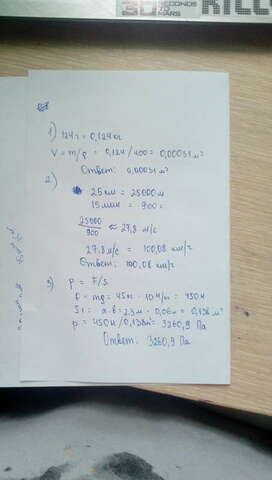 30 SECONDS TO MARS
1) 124 г = 0,124 кг
V = m/ρ = 0,124 / 400 = 0,00031 м³
Ответ: 0,00031 м³
2)
25 км = 25000 м
15 мин = 900 с
25000/900 ≈ 27,8 м/с
27,8 м/с = 100,08 км/г
Ответ: 100,08 км/г
3) p = F/s
F = mg = 45 кг · 10 Н/кг = 450 Н
S1 = a·b = 2,3 м · 0,06 м = 0,138 м²
p = 450 Н / 0,138 м² = 3260,9 Па
Ответ: 3260,9 Па